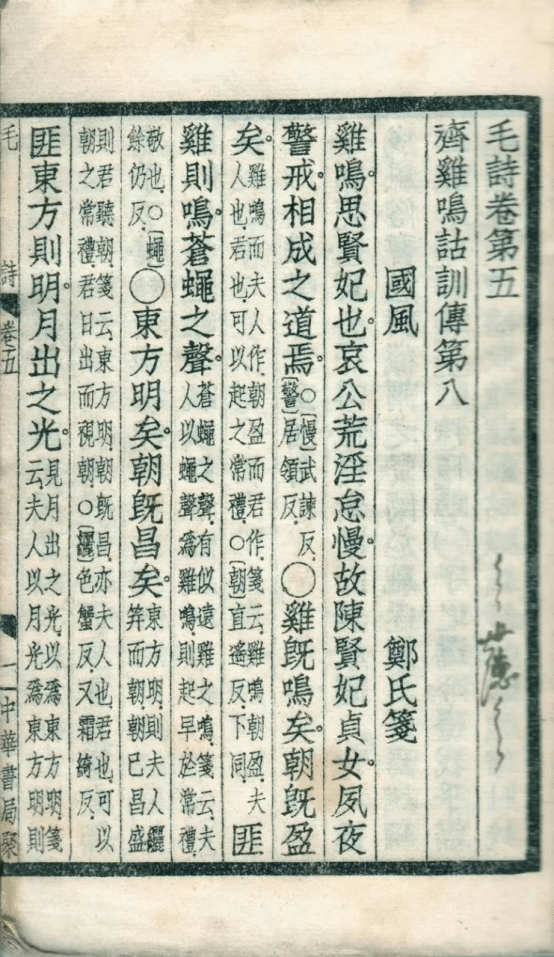 毛詩卷第五
齊雞鳴詁訓傳第八
國風 鄭氏箋
雞鳴思賢妃也。哀公荒淫怠慢。故陳賢妃貞女夙夜
警戒相成之道焉。○[慢]武諫反.[警]居領反.◯雞既鳴矣。朝既盈
矣。雞鳴而夫人作.朝盈而君作.箋云.雞鳴朝盈.夫人也.君也.可以起之常禮.○[朝]直遙反.下同.匪
雞則鳴。蒼蠅之聲。蒼蠅之聲.有似遠雞之鳴.箋云.夫人以蠅聲爲雞鳴.則起早於常禮.
敬也.○[蠅]餘仍反.◯東方明矣。朝既昌矣。東方明.則夫人纚笄而朝.朝已昌盛
則君聽朝.箋云.東方明.朝既昌.亦夫人也.君也.可以朝之常禮.君日出而視朝.○[纚]色蟹反.又霜綺反.
匪東方則明。月出之光。見月出之光.以爲東方明.箋云.夫人以月光爲東方明.則
毛 詩 卷五 一 中華書局聚